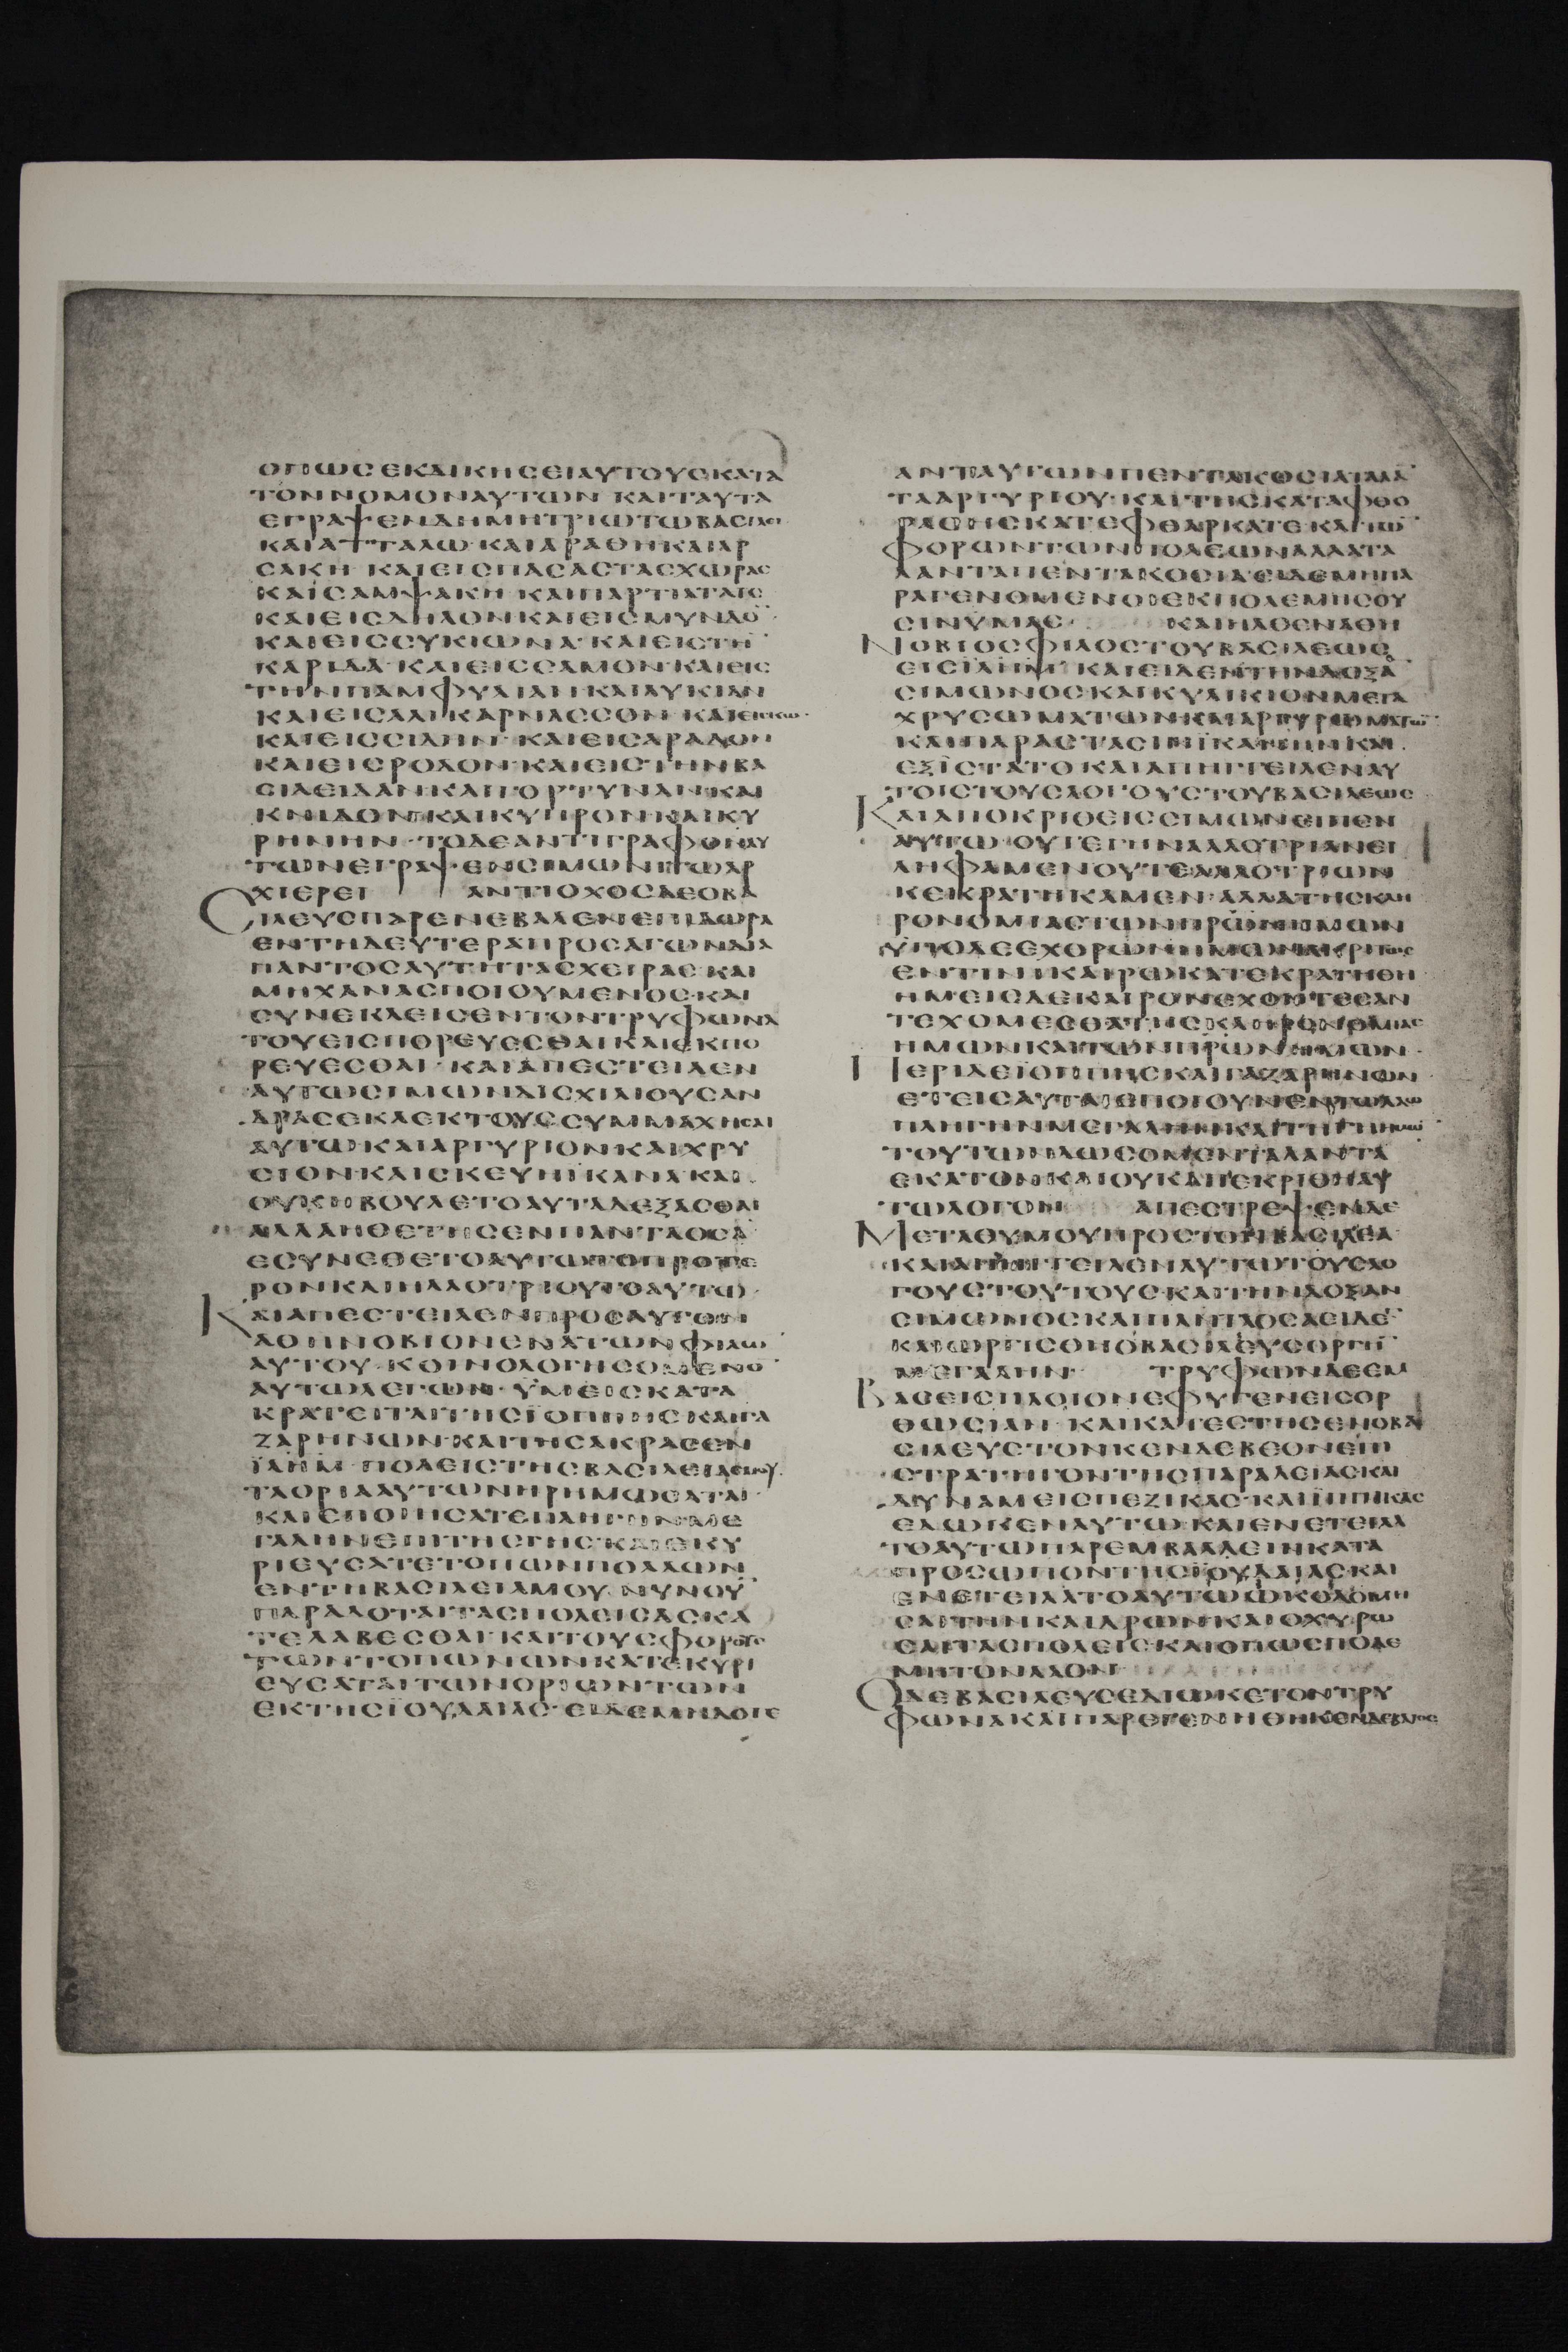 ΟΠΩΣΕΚΔΙΚΗΣΕΙΑΥΤΟΥΣΚΑΤΑ
ΤΟΝΝΟΜΟΝΑΥΤΩΝ ΚΑΙΤΑΥΤΑ
ΕΓΡΑΨΕΝΔΗΜΗΤΡΙΩΤΩΒΑΣΙΛΕΙ
ΚΑΙΑΤΤΑΛΩ·ΚΑΙΑΡΑΘΗΚΑΙΑΡ
ΣΑΚΗ ΚΑΙΕΙΣΠΑΣΑΣΤΑΣΧΩΡΑΣ
ΚΑΙΣΑΜΨΑΚΗ ΚΑΙΣΠΑΡΤΙΑΤΑΙΣ
ΚΑΙΕΙΣΔΗΛΟΝΚΑΙΕΙΣΜΥΝΔΟ̅
ΚΑΙΕΙΣΣΥΚΙΩΝΑ·ΚΑΙΕΙΣΤΗ̅
ΚΑΡΙΔΑ·ΚΑΙΕΙΣΣΑΜΟΝ·ΚΑΙΕΙΣ
ΤΗΝΠΑΜΦΥΛΙΑΝΚΑΙΛΥΚΙΑΝ
ΚΑΙΕΙΣΑΛΙΚΑΡΝΑΣΣΟΝ·ΚΑΙΕΙΣΚΩ·
ΚΑΙΕΙΣΣΙΔΗΝ·ΚΑΙΕΙΣΑΡΑΔΟΝ
ΚΑΙΕΙΣΡΟΔΟΝ·ΚΑΙΕΙΣΤΗΝΒΑ
ΣΙΛΕΙΔΑΝΚΑΙΓΟΡΤΥΝΑΝΚΑΙ
ΚΝΙΔΟΝΚΑΙΚΥΠΡΟΝΚΑΙΚΥ
ΡΗΝΗΝ·ΤΟΔΕΑΝΤΙΓΡΑΦΟΝΑΥ
ΤΩΝΕΓΡΑΨΕΝΣΙΜΩΝΙΤΩΑΡ
ΧΙΕΡΕΙ ΑΝΤΙΟΧΟΣΔΕΟΒΑ
ΣΙΛΕΥΣΠΑΡΕΝΕΒΑΛΕΝΕΠΙΔΩΡΑ
ΕΝΤΗΔΕΥΤΕΡΑΠΡΟΣΑΓΩΝΔΙΑ
ΠΑΝΤΟΣΑΥΤΗΤΑΣΧΕΙΡΑΣ·ΚΑΙ
ΜΗΧΑΝΑΣΠΟΙΟΥΜΕΝΟΣ·ΚΑΙ
ΣΥΝΕΚΛΕΙΣΕΝΤΟΝΤΡΥΦΩΝΑ
ΤΟΥΕΙΣΠΟΡΕΥΕΣΘΑΙΚΑΙΕΚΠΟ
ΡΕΥΕΣΘΑΙ·ΚΑΙΑΠΕΣΤΕΙΛΕΝ
ΑΥΤΩΣΙΜΩΝΔΙΣΧΙΛΙΟΥΣΑΝ
ΔΡΑΣΕΚΛΕΚΤΟΥΣΣΥΜΜΑΧΗΣΑΙ
ΑΥΤΩΚΑΙΑΡΓΥΡΙΟΝΚΑΙΧΡΥ
ΣΙΟΝ·ΚΑΙΣΚΕΥΗΪΚΑΝΑ·ΚΑΙ
ΟΥΚΗΒΟΥΛΕΤΟΑΥΤΑΔΕΞΑΣΘΑΙ
ΑΛΛΑΗΘΕΤΗΣΕΝΠΑΝΤΑΟΣΑ
ΕΣΥΝΕΘΕΤΟΑΥΤΩΤΟΠΡΟΤΕ
ΡΟΝΚΑΙΗΛΛΟΤΡΙΟΥΤΟΑΥΤΩ·
ΚΑΙΑΠΕΣΤΕΙΛΕΝΠΡΟΣΑΥΤΟΝ
ΑΘΗΝΟΒΙΟΝΕΝΑΤΩΝΦΙΛΩ̅
ΑΥΤΟΥ·ΚΟΙΝΟΛΟΓΗΣΟΜΕΝΟ̅
ΑΥΤΩΛΕΓΩΝ·ΫΜΕΙΣΚΑΤΑ
ΚΡΑΤΕΙΤΑΙΤΗΣΪΟΠΠΗΣΚΑΙΓΑ
ΖΑΡΗΝΩΝ·ΚΑΙΤΗΣΑΚΡΑΣΕΝ
ΪΛΗΜ·ΠΟΛΕΙΣΤΗΣΒΑΣΙΛΕΙΑΣΜΟΥ·
ΤΑΟΡΙΑΑΥΤΩΝΗΡΗΜΩΣΑΤΑΙ·
ΚΑΙΕΠΟΙΗΣΑΤΕΠΛΗΓΗΝΜΕ
ΓΑΛΗΝΕΠΙΤΗΣΓΗΣ·ΚΑΙΕΚΥ
ΡΙΕΥΣΑΤΕΤΟΠΩΝΠΟΛΛΩΝ
ΕΝΤΗΒΑΣΙΛΕΙΑΜΟΥ·ΝΥΝΟΥ̅
ΠΑΡΑΔΟΤΑΙΤΑΣΠΟΛΕΙΣΑΣΚΑ
ΤΕΛΑΒΕΣΘΑΙ·ΚΑΙΤΟΥΣΦΟΡΟΥΣ
ΤΩΝΤΟΠΩΝΩΝΚΑΤΕΚΥΡΙ
ΕΥΣΑΤΑΙΤΩΝΟΡΙΩΝΤΩΝ
ΕΚΤΗΣΪΟΥΔΑΙΑΣ·ΕΙΔΕΜΗΔΟΤΕ
ΑΝΤΑΥΤΩΝΠΕΝΤΑΚΟΣΙΑΤΑΛΑ̅
ΤΑΑΡΓΥΡΙΟΥ·ΚΑΙΤΗΣΚΑΤΑΦΘΟ
ΡΑΣΗΣΚΑΤΕΦΘΑΡΚΑΤΕΚΑΙΤΩ̅
ΦΟΡΩΝΤΩΝΠΟΛΕΩΝΑΛΛΑΤΑ
ΛΑΝΤΑΠΕΝΤΑΚΟΣΙΑ·ΕΙΔΕΜΗΠΑ
ΡΑΓΕΝΟΜΕΝΟΙΕΚΠΟΛΕΜΗΣΟΥ
ΣΙΝΫΜΑΣ· ΚΑΙΗΛΘΕΝΑΘΗ
ΝΟΒΙΟΣΦΙΛΟΣΤΟΥΒΑΣΙΛΕΩΣ
ΕΙΣΪΛΗΜ·ΚΑΙΕΙΔΕΝΤΗΝΔΟΞΑ̅
ΣΙΜΩΝΟΣΚΑΙΚΥΛΙΚΙΟΝΜΕΤΑ
ΧΡΥΣΩΜΑΤΩΝΚΑΙΑΡΓΥΡΩΜΑΤΩ̅
ΚΑΙΠΑΡΑΣΤΑΣΙΝΪΚΑΝΗΝΚΑΙ
ΕΞΙΣΤΑΤΟΚΑΙΑΠΗΓΓΕΙΛΕΝΑΥ
ΤΟΙΣΤΟΥΣΛΟΓΟΥΣΤΟΥΒΑΣΙΛΕΩΣ
ΚΑΙΑΠΟΚΡΙΘΕΙΣΣΙΜΩΝΕΙΠΕΝ
ΑΥΤΩ·ΟΥΤΕΓΗΝΑΛΛΟΤΡΙΑΝΕΙ
ΛΗΦΑΜΕΝΟΥΤΕΑΛΛΟΤΡΙΩΝ
ΚΕΚΡΑΤΗΚΑΜΕΝ·ΑΛΛΑΤΗΣΚΛΗ
ΡΟΝΟΜΙΑΣΤΩΝΠΡΩΝΗΜΩΝ
ΫΠΟΔΕΕΧΘΡΩΝΗΜΩΝΑΚΡΙΤΩΣ
ΕΝΤΙΝΙΚΑΙΡΩΚΑΤΕΚΡΑΤΗΘΗ
ΗΜΕΙΣΔΕΚΑΙΡΟΝΕΧΟΝΤΕΣΑΝ
ΤΕΧΟΜΕΣΘΑΤΗΣΚΛΗΡΟΝΟΜΙΑΣ
ΗΜΩΝΚΑΙΤΩΝΠΡΩΝΗΜΩΝ·
ΠΕΡΙΔΕΪΟΠΠΗΣΚΑΙΓΑΖΑΡΗΝΩΝ
ΕΤΕΙΣΑΥΤΑΙΕΠΟΙΟΥΝΕΝΤΩΛΑΩ
ΠΛΗΓΗΝΜΕΓΑΛΗΝΚΑΙΤΗ
ΤΟΥΤΩΝΔΩΣΟΜΕΝΤΑΛΑΝΤΑ
ΕΚΑΤΟΝΚΑΙΟΥΚΑΠΕΚΡΙΘΗΑΥ
ΤΩΛΟΓΟΝ ΑΠΕΣΤΡΕΨΕΝΔΕ
ΜΕΤΑΘΥΜΟΥΠΡΟΣΤΟΝΒΑΣΙΛΕΑ
ΚΑΙΑΠΗΓΓΕΙΛΕΝΑΥΤΩΤΟΥΣΛΟ
ΓΟΥΣΤΟΥΤΟΥΣΚΑΙΤΗΝΔΟΞΑΝ
ΣΙΜΩΝΟΣΚΑΙΠΑΝΤΑΟΣΑΕΙΔΕ̅
ΚΑΙΩΡΓΙΣΘΗΟΒΑΣΙΛΕΥΣΟΡΓΗ̅
ΜΕΓΑΛΗΝ· ΤΡΥΦΩΝΔΕΕΜ
ΒΑΣΕΙΣΠΛΟΙΟΝΕΦΥΓΕΝΕΙΣΟΡ
ΘΩΣΙΑΝ·ΚΑΙΚΑΤΕΣΤΗΣΕΝΟΒΑ
ΣΙΛΕΥΣΤΟΝΚΕΝΔΕΒΕΟΝΕΠΙ
ΣΤΡΑΤΗΓΟΝΤΗΣΠΑΡΑΛΕΙΑΣΚΑΙ
ΔΥΝΑΜΕΙΣΠΕΖΙΚΑΣ·ΚΑΙΪΠΠΙΚΑΣ
ΕΔΩΚΕΝΑΥΤΩ·ΚΑΙΕΝΕΤΕΙΛΑ
ΤΟΑΥΤΩΠΑΡΕΜΒΑΛΛΕΙΝΚΑΤΑ
ΠΡΟΣΩΠΟΝΤΗΣΪΟΥΔΑΙΑΣΚΑΙ
ΕΝΕΤΕΙΛΑΤΟΑΥΤΩΟΙΚΟΔΟΜΗ
ΣΑΙΤΗΝΚΑΙΔΡΩΝ·ΚΑΙΟΧΥΡΩ
ΣΑΙΤΑΣΠΟΛΕΙΣΚΑΙΟΠΩΣΠΟΛΕ
ΜΗΤΟΝΛΑΟΝ
ΟΔΕΒΑΣΙΛΕΥΣΕΔΙΩΚΕΤΟΝΤΡΥ
ΦΩΝΑΚΑΙΠΑΡΕΓΕΝΗΘΗΚΕΝΔΕΒΑΙΟΣ